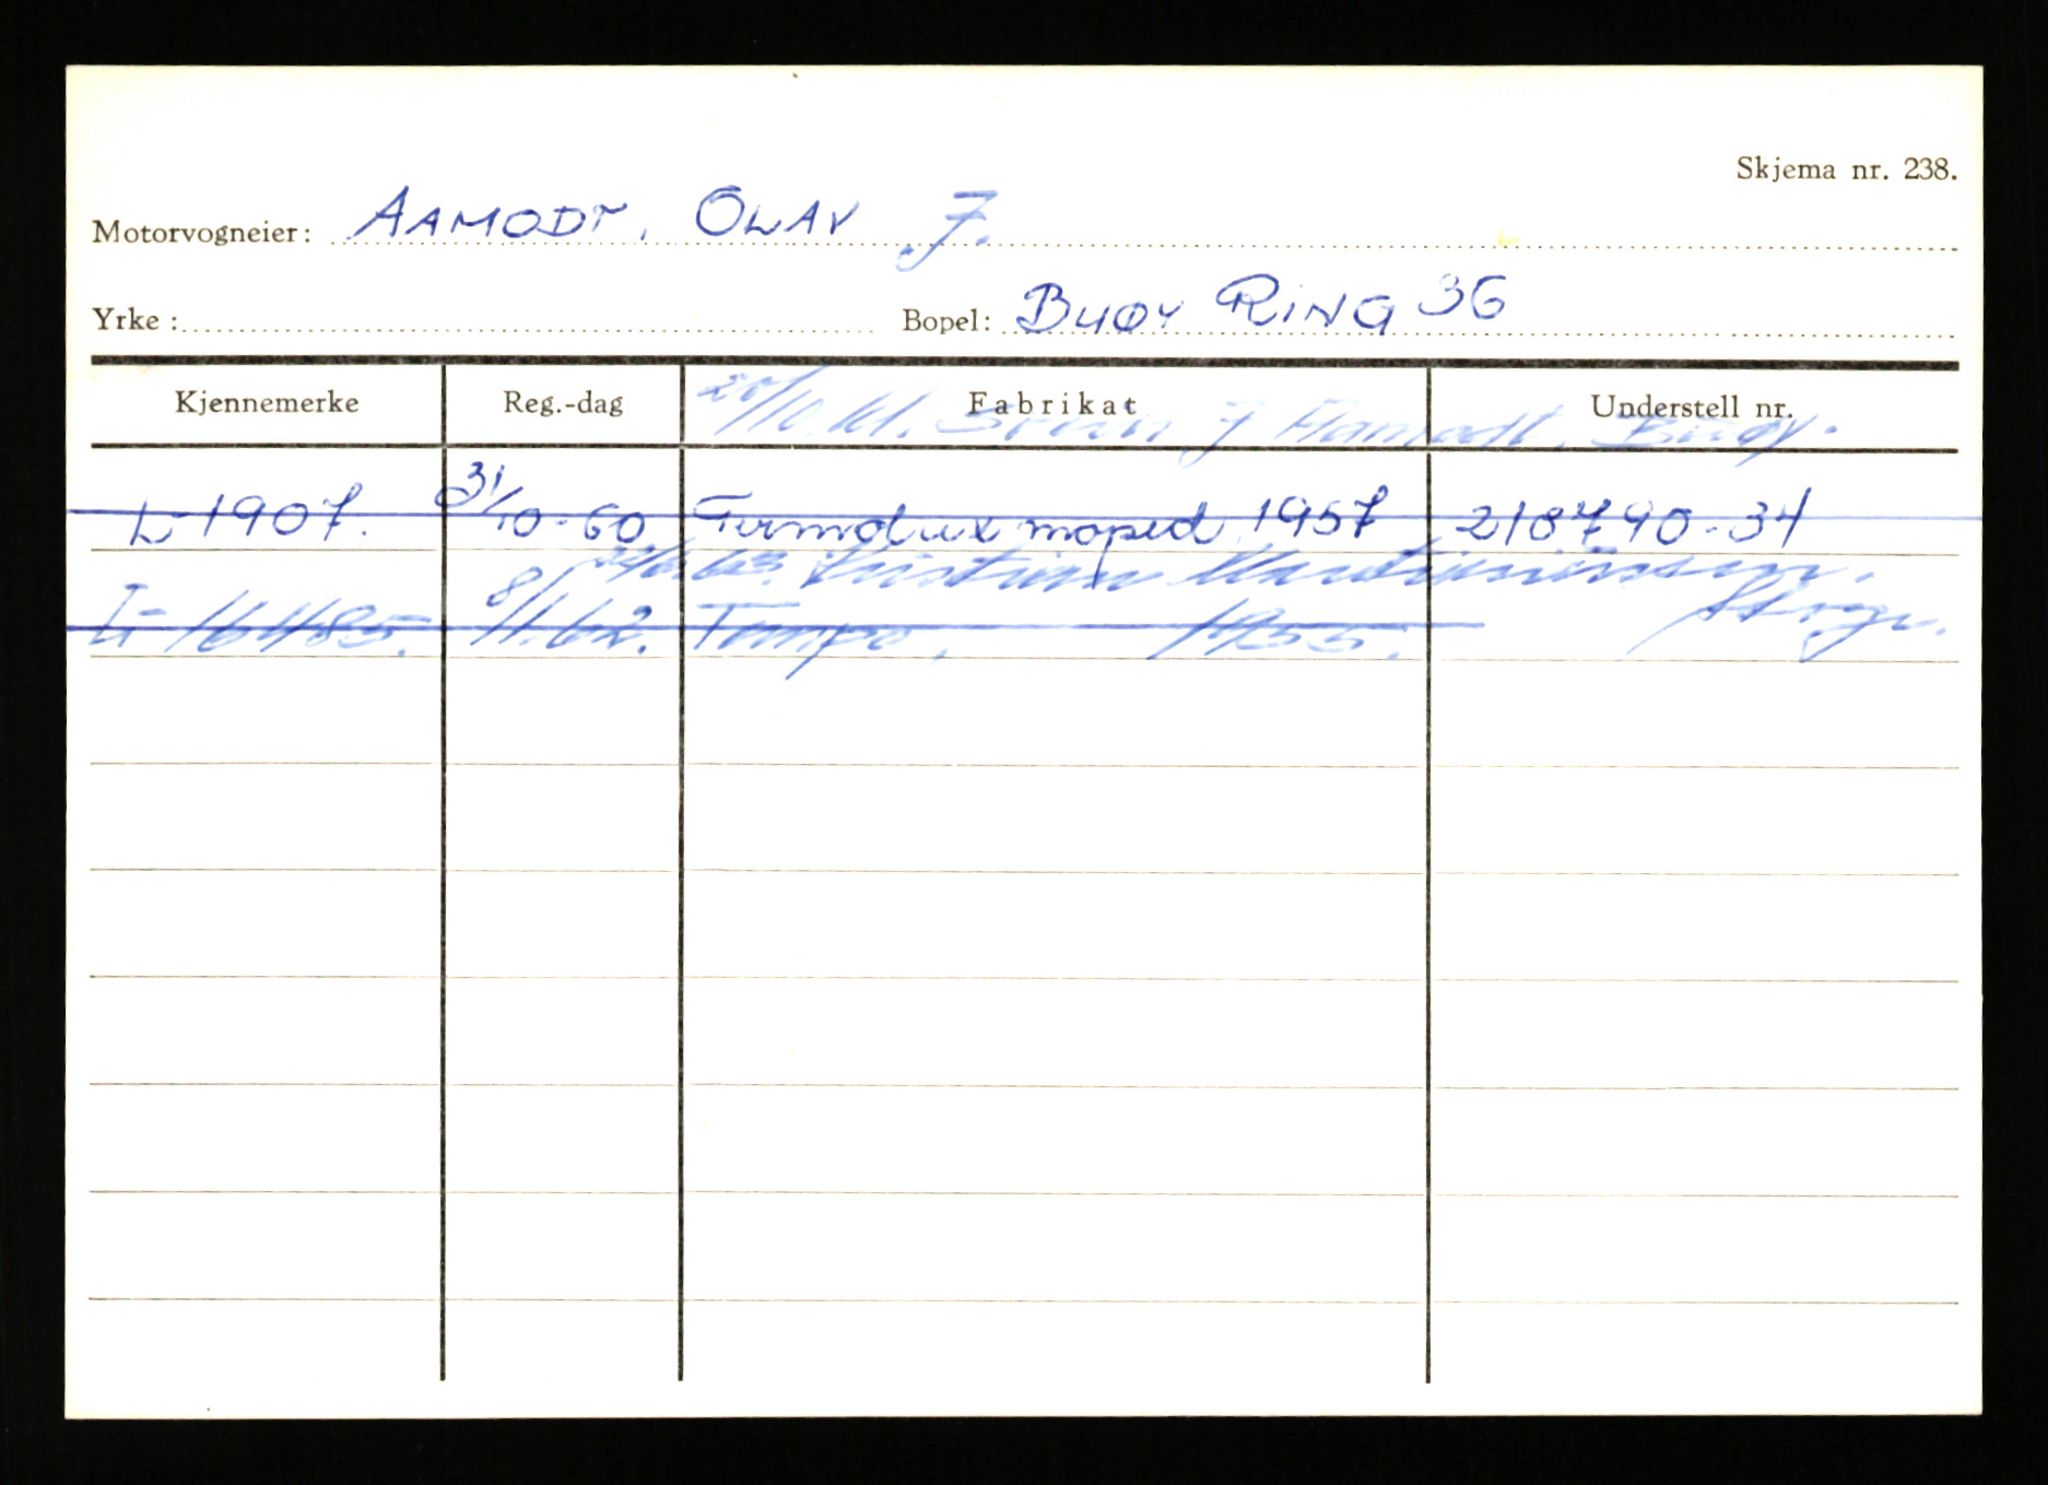 Skjema nr. 238.
Motorvogneier: AAMODT, OLAV J.
Yrke: Bopel: BUØY RING 36
Kjennemerke Reg.-dag Fabrikat Understell nr.
20/10.61. Svein J Aamodt. Buøy.
L-1907. 31/10-60 Termolux moped 1957 218790-34
Kristian
L-16485. 8/1.62. Tempo. 1955.